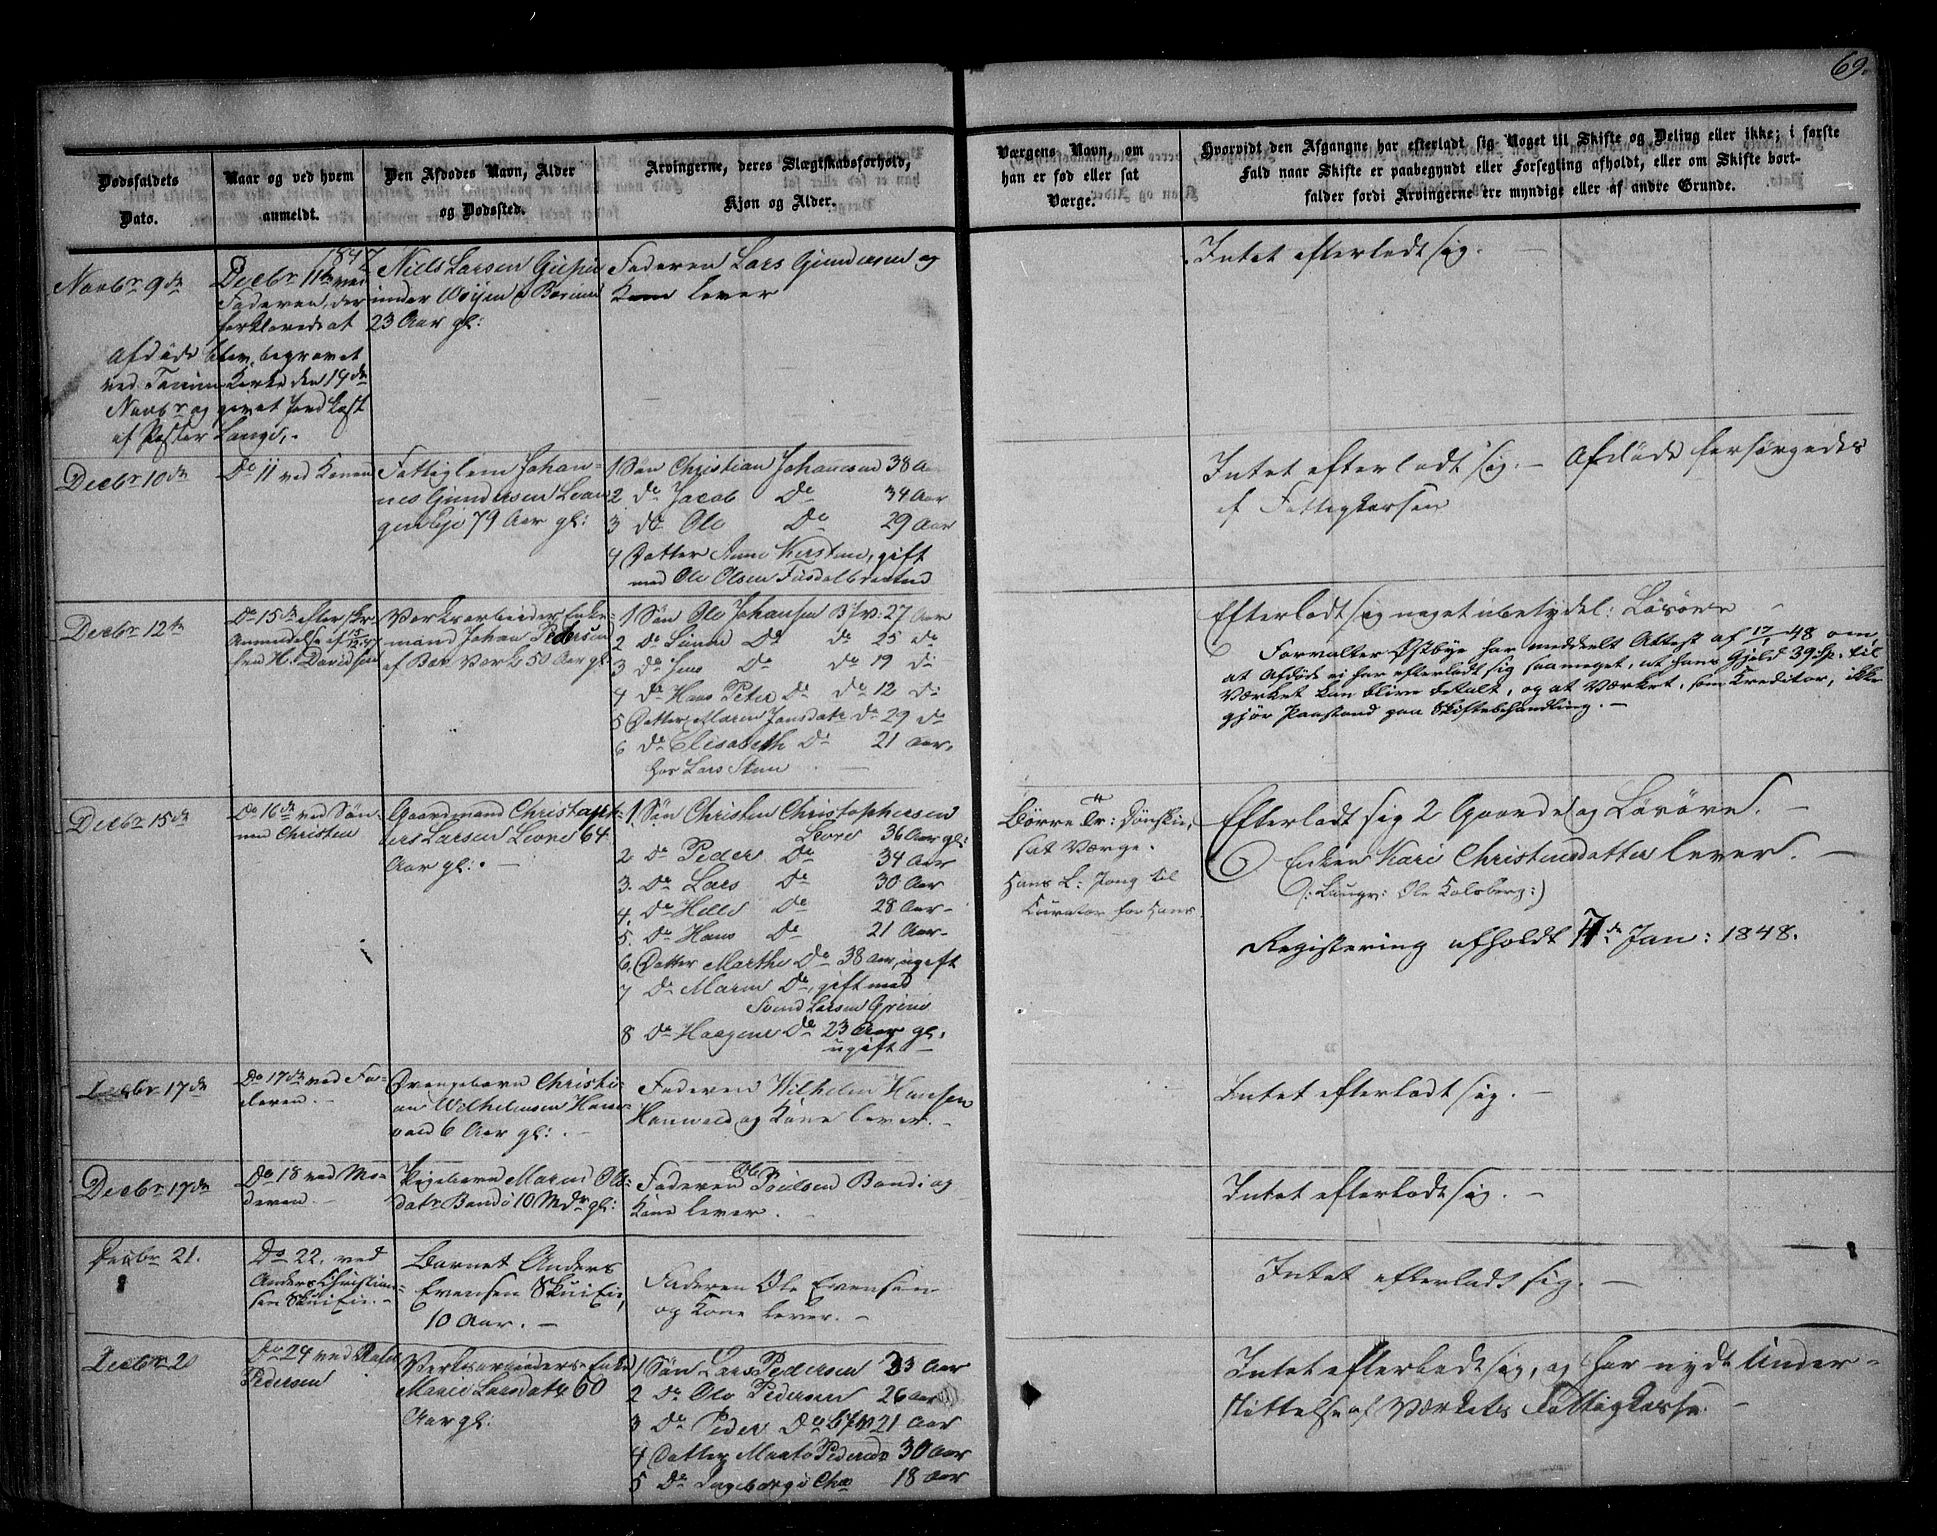 69.
Dødsfaldets
Dato.
Naar og ved hvem
anmeldt.
Den Afdødes Navn, Alder
og Dødssted.
Arvingerne, deres Slægtskabsforhold,
Kjøn og Alder.
Værgens Navn, om
han er fød eller sat
Værge.
Hvorvidt den Afgangne har efterladt sig Noget til Skifte og Deling eller ikke; i første
Fald naar Skifte er paabegyndt eller Forsegling afholdt, eller om Skifte bort-
falder fordi Arvingerne ere myndige eller af andre Grunde.
Novbr 9de
1847
Decbr 11te ved
Faderen, der
forklarede at
Afdøde blev begravet
ved Tanum Kirke den 19de
Novbr og givet Jordkast
af Pastor Lange.
Niels Larsen
under Wøyen i Bærum
23 Aar gl:
Faderen Lars Gundersen og
Kone lever
Intet efterladt sig.
Decbr 10de
Do 11 ved Konen
Fattiglem Johan-
nes Gundersen
79 Aar gl:
1 Søn Christian Johannesen 38 Aar
2 do Jacob Do 34 Aar
3 do Ole Do 29 Aar
4 Datter Anne Kirstine, gift
med Ole Olsen
Intet efterladt sig. – Afdøde forsørgedes
af Fattigkassen
Decbr 12te
Do 15de efter skr:
Anmeldelse af 15/12 47
H. Davidsen
Værksarbeider Enke-
mand Johan Pedersen
af Bær. Værk 50 Aar gl
1 Søn Ole Johansen 27 Aar
2 Do Do do 25 do
3 do Jens Do do 19 do
4 do Hans Peter Do do 12 do
5 Datter Maren Jansdatr do 29 do
6 do Elisabeth Do 21 Aar,
hos Lars
Efterladt sig noget ubetydel: Løsøre –
Forvalter Østbye har meddeelt Attest af 17/1 48 om,
at Afdøde ei har efterladt sig saameget, at hans Gjeld 39 Sp. til
Værket kan blive betalt, og at Værket, som Kreditor, ikke
gjør Paastand paa Skiftebehandling. –
Decbr 15de
Do 16de ved Søn-
nen Christen
Gaardmand Christoph-
ers Larsen Leone 64
Aar gl: –
1. Søn Christen Christophersen
Leone 36 Aar gl:
2 Do Peder Do 34 Aar
3. Do Lars Do 30 Aar
4. Do Do 28 Aar –
5. Do Hans Do 21 Aar –
6. Datter Marthe Do 38 Aar, ugift
7 Do Maren Do, gift med
Svend Larsen Grini
8 Do Do 23 Aar gl:
ugift –
Børre Tr: Jonskie,
sat Værge.
Hans L: Jong til
Kurator for Hans.
Efterladt sig 2 Gaarde og Løsøre. –
Enken Kari Christensdatter lever. –
(: Laugv: Ole Kolsberg :)
Registering afholdt 7de Jan: 1848.
Decbr 17de
Do 17de ved Fa-
deren. –
Drengebarn Christi-
an Wilhelmsen
6 Aar gl: –
Faderen Wilhelm Hansen
og Kone lever. –
Intet efterladt sig. –
Decbr 17de
Do 18 ved Mo-
deren. –
Pigebarn Maren Ols-
datr 10 Mdr gl:
Faderen Ole Poulsen og
Kone lever. –
Intet efterladt sig. –
Decbr 21.
Do 22. ved
Anders Christian-
sen Skui Eie. –
Barnet Anders
Evensen Skui Eie,
10 Aar. –
Faderen Ole Evensen
og Kone lever. –
Intet efterladt sig. –
Decbr 20
Do 24 ved
Pedersen
Værksarbeiders Enke
Marie Larsdatr 60
Aar gl:
1 Søn Lars Pedersen 33 Aar
2 Do Ole Pedersen 26 Aar
3 Do Peder Do 21 Aar
4 Datter Pedersd 30 Aar
5 Do Ingeborg 18 Aar
Intet efterladt sig, og har nydt Under-
stittelse af Værkets Fattigkasse. –